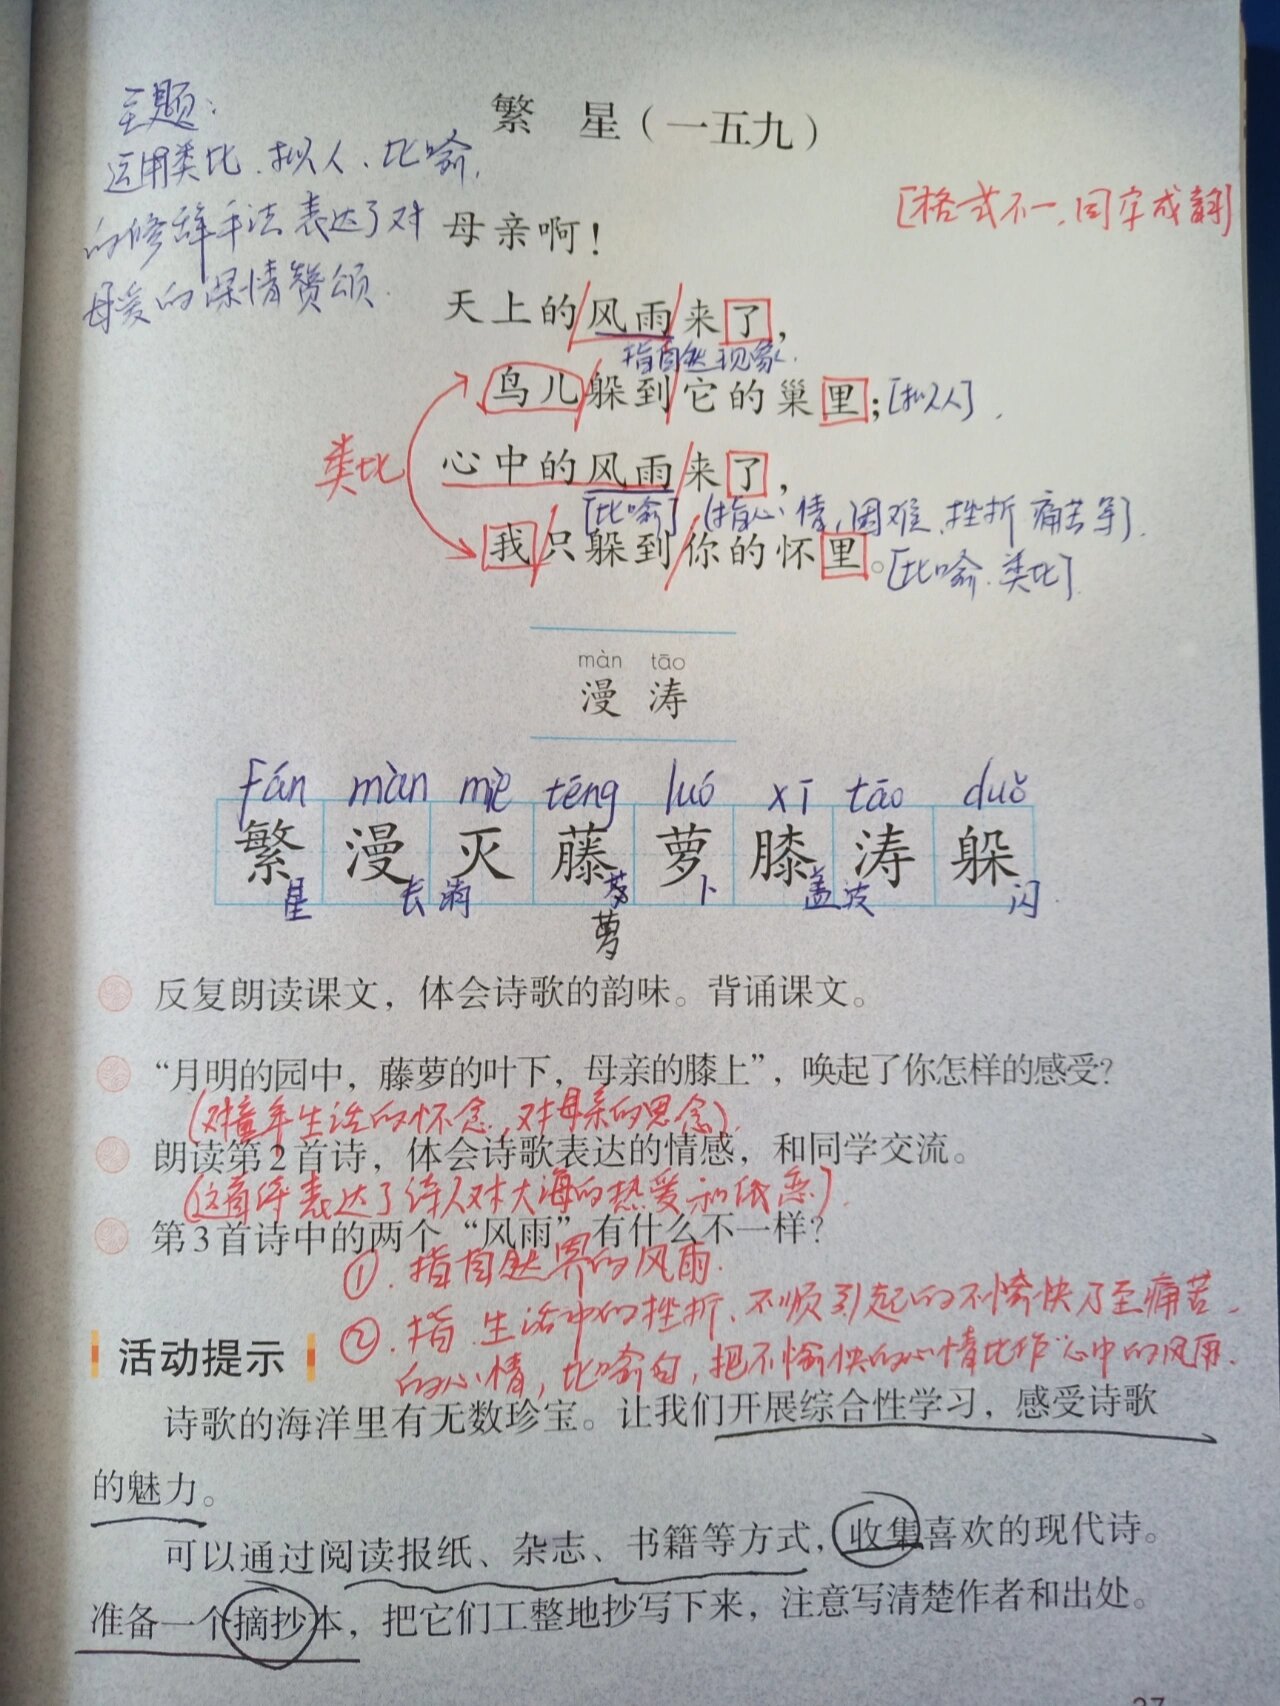 繁 星（一五九）
主题：
运用类比、拟人、比喻，
的修辞手法表达了对
母爱的深情赞颂
[格式不一，同字成韵]
母亲啊！
天上的风雨来了，
指自然现象.
鸟儿躲到它的巢里；[拟人]
类比
心中的风雨来了，
[比喻] (指心情，困难、挫折 痛苦等)
我只躲到你的怀里。[比喻、类比]
màn tāo
漫 涛
fán màn miè téng luó xī tāo duǒ
繁 漫 灭 藤 萝 膝 涛 躲
星 长 消 萝 卜 盖 波 闪
萝
反复朗读课文，体会诗歌的韵味。背诵课文。
“月明的园中，藤萝的叶下，母亲的膝上”，唤起了你怎样的感受？
(对童年生活的怀念，对母亲的思念)
朗读第2首诗，体会诗歌表达的情感，和同学交流。
(这首诗表达了诗人对大海的热爱和依恋)
第3首诗中的两个“风雨”有什么不一样？
①.指自然界的风雨.
②.指 生活中的挫折、不顺引起的不愉快乃至痛苦
的心情，比喻句，把不愉快的心情比作“心中的风雨.
活动提示
诗歌的海洋里有无数珍宝。让我们开展综合性学习，感受诗歌
的魅力。
可以通过阅读报纸、杂志、书籍等方式，收集喜欢的现代诗。
准备一个摘抄本，把它们工整地抄写下来，注意写清楚作者和出处。